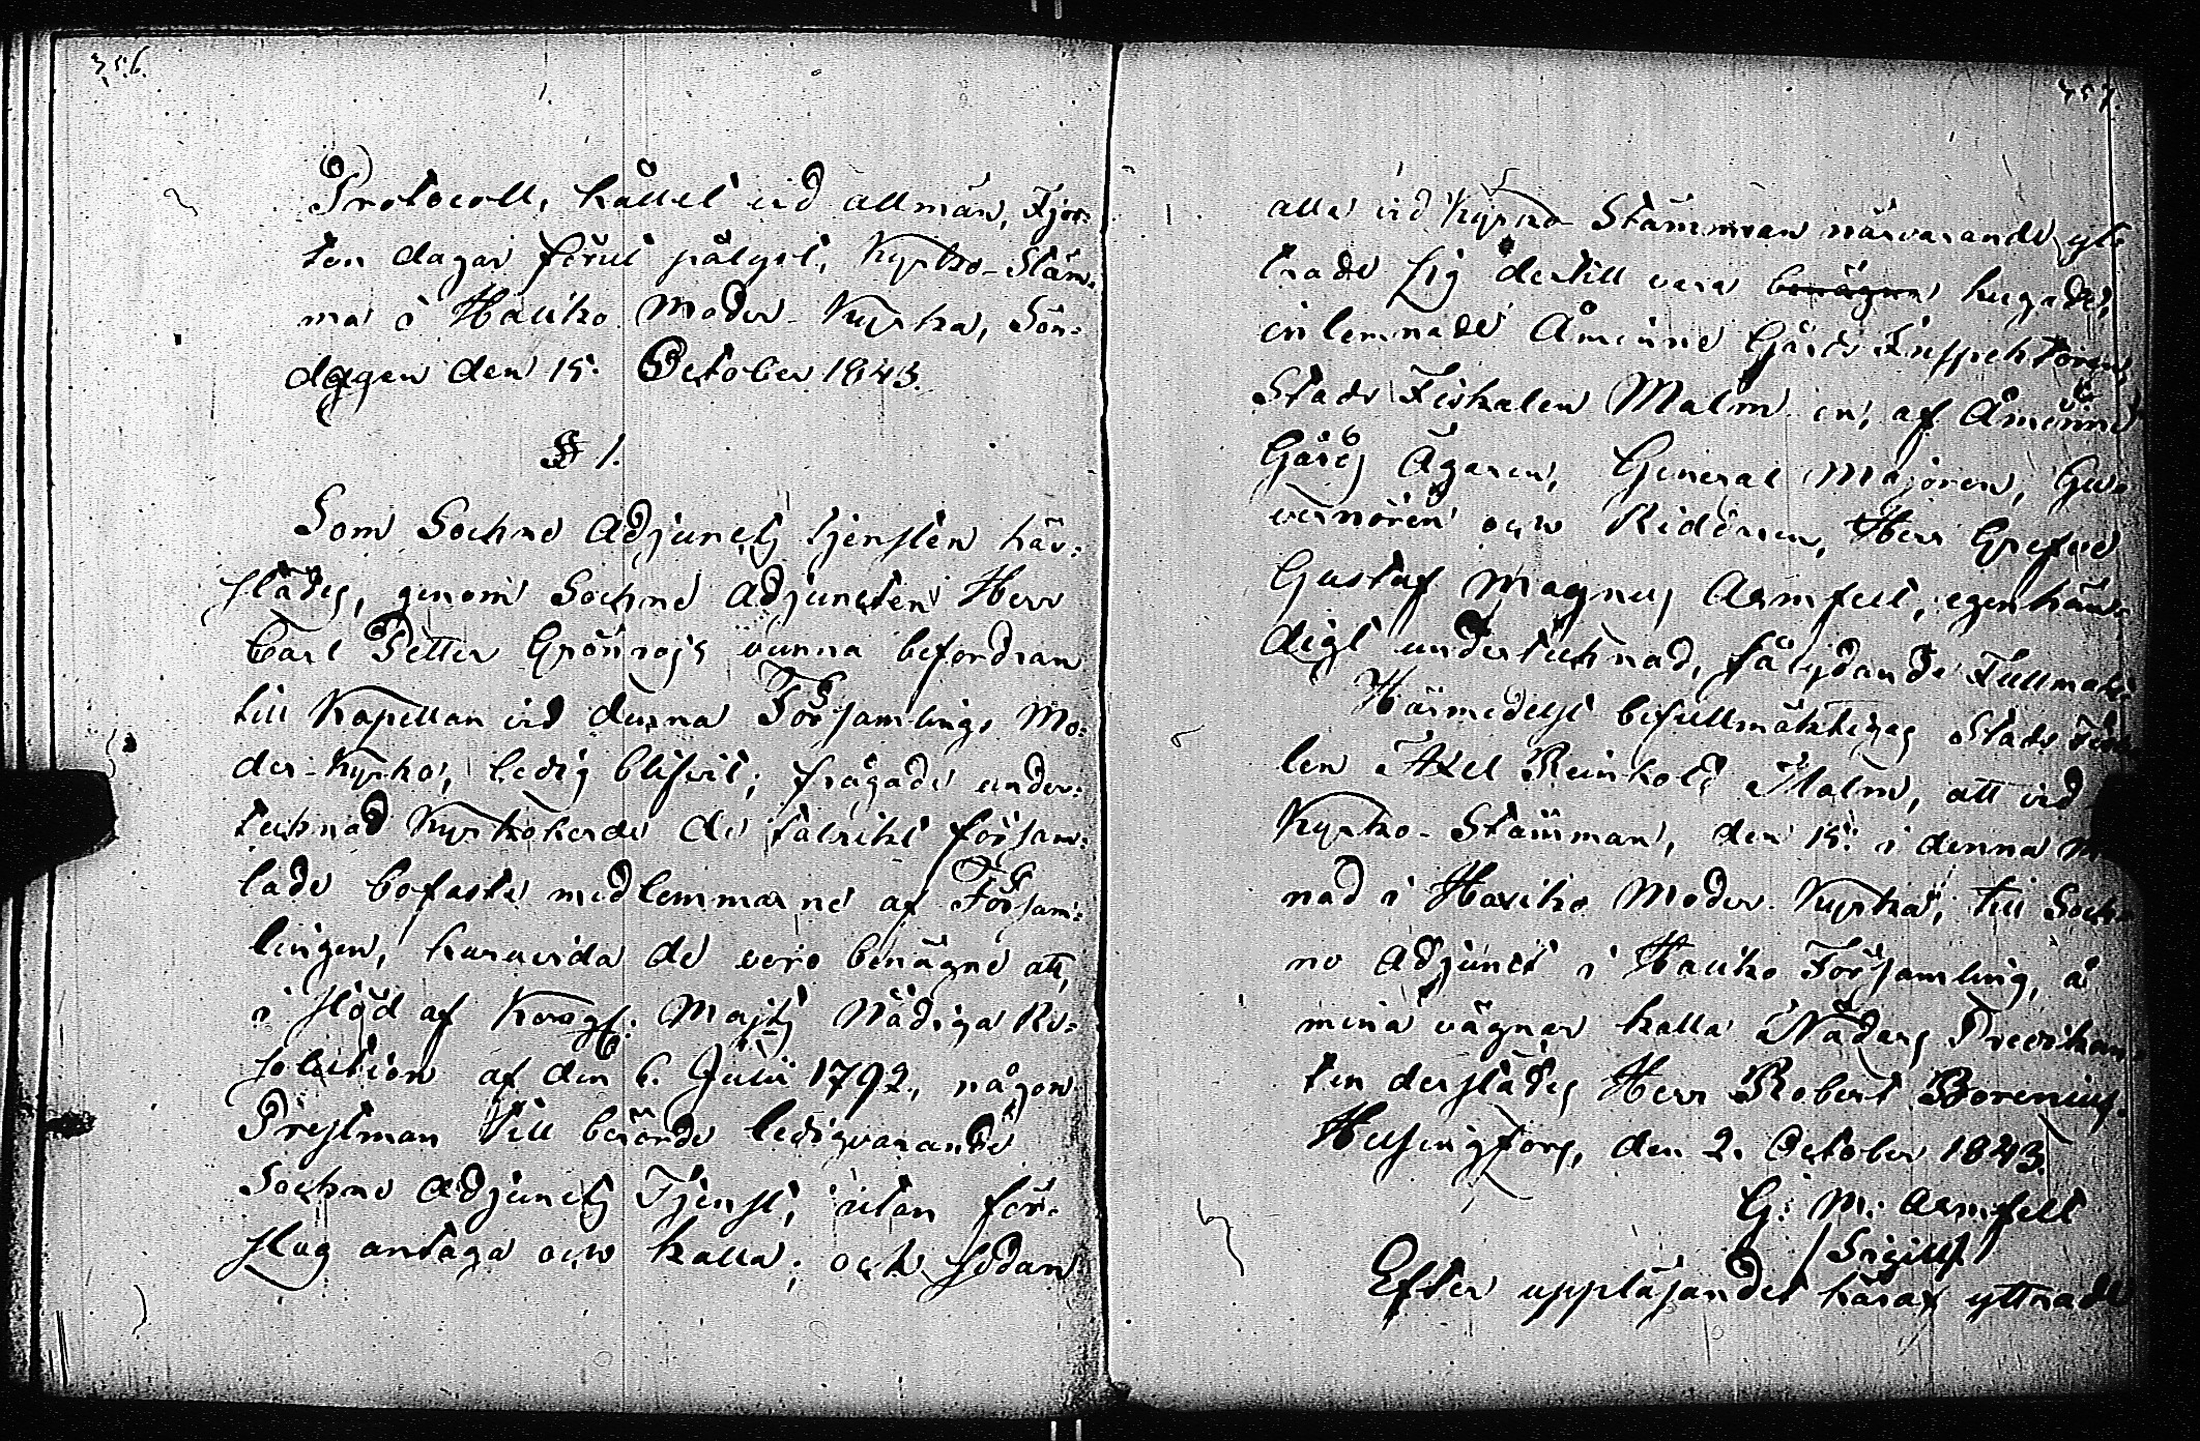 356.
Protocoll, hållet vid allmän, Fjor-
ton dagar förut pålyst, Kyrko-Stäm-
ma i Hauho Moder-Kyrka, Sön-
dagen den 15. October 1843.
§ 1.
Som Sockne Adjuncts tjensten här-
städes, genom Sockne Adjuncten Herr
Carl Petter Grönroos vunna befordran
till Kapellan vid denna Församlings Mo-
der-Kyrka, ledig blifvit; frågade under-
tecknad Kyrkoherde de talrikt försam-
lade bofasta medlemmarne af Försam-
lingen, huruvida de voro benägne att,
i stöd af Kongl. Majts Nådiga Re-
solution af den 6. Julii 1792, någon
Prestman till berörde ledigvarande
Sockne Adjuncts Tjenst, utan för-
slag antaga och kalla; och sedan
357.
alla vid Kyrko-Stämman närvarande ytt-
rade sig dertill vara benägna hugade,
inlemnade Åminne Gårds Inspektoren
Stads Fiskalen Malm en, af Åminne
Gårds Ägaren, General Majoren, Gu-
vernören och Riddaren, Herr Grefve
Gustaf Magnus Armfelt, egenhän-
digt undertecknad, så lydande Fullmakt:
Härmedelst befullmäktigas Stads Fiska-
len Axel Reinhold Malm, att vid
Kyrko-Stämman, den 15. i denna
nad i Hauho Moder-Kyrka, till Sock-
ne Adjunct i Hauho Församling, å
mina vägnar kalla Nådens Predikan-
ten derstädes Herr Robert Borenius.
Helsingfors, den 2. October 1843.
G. M. Armfelt
/Sigill/
Efter uppläsandet häraf yttrade